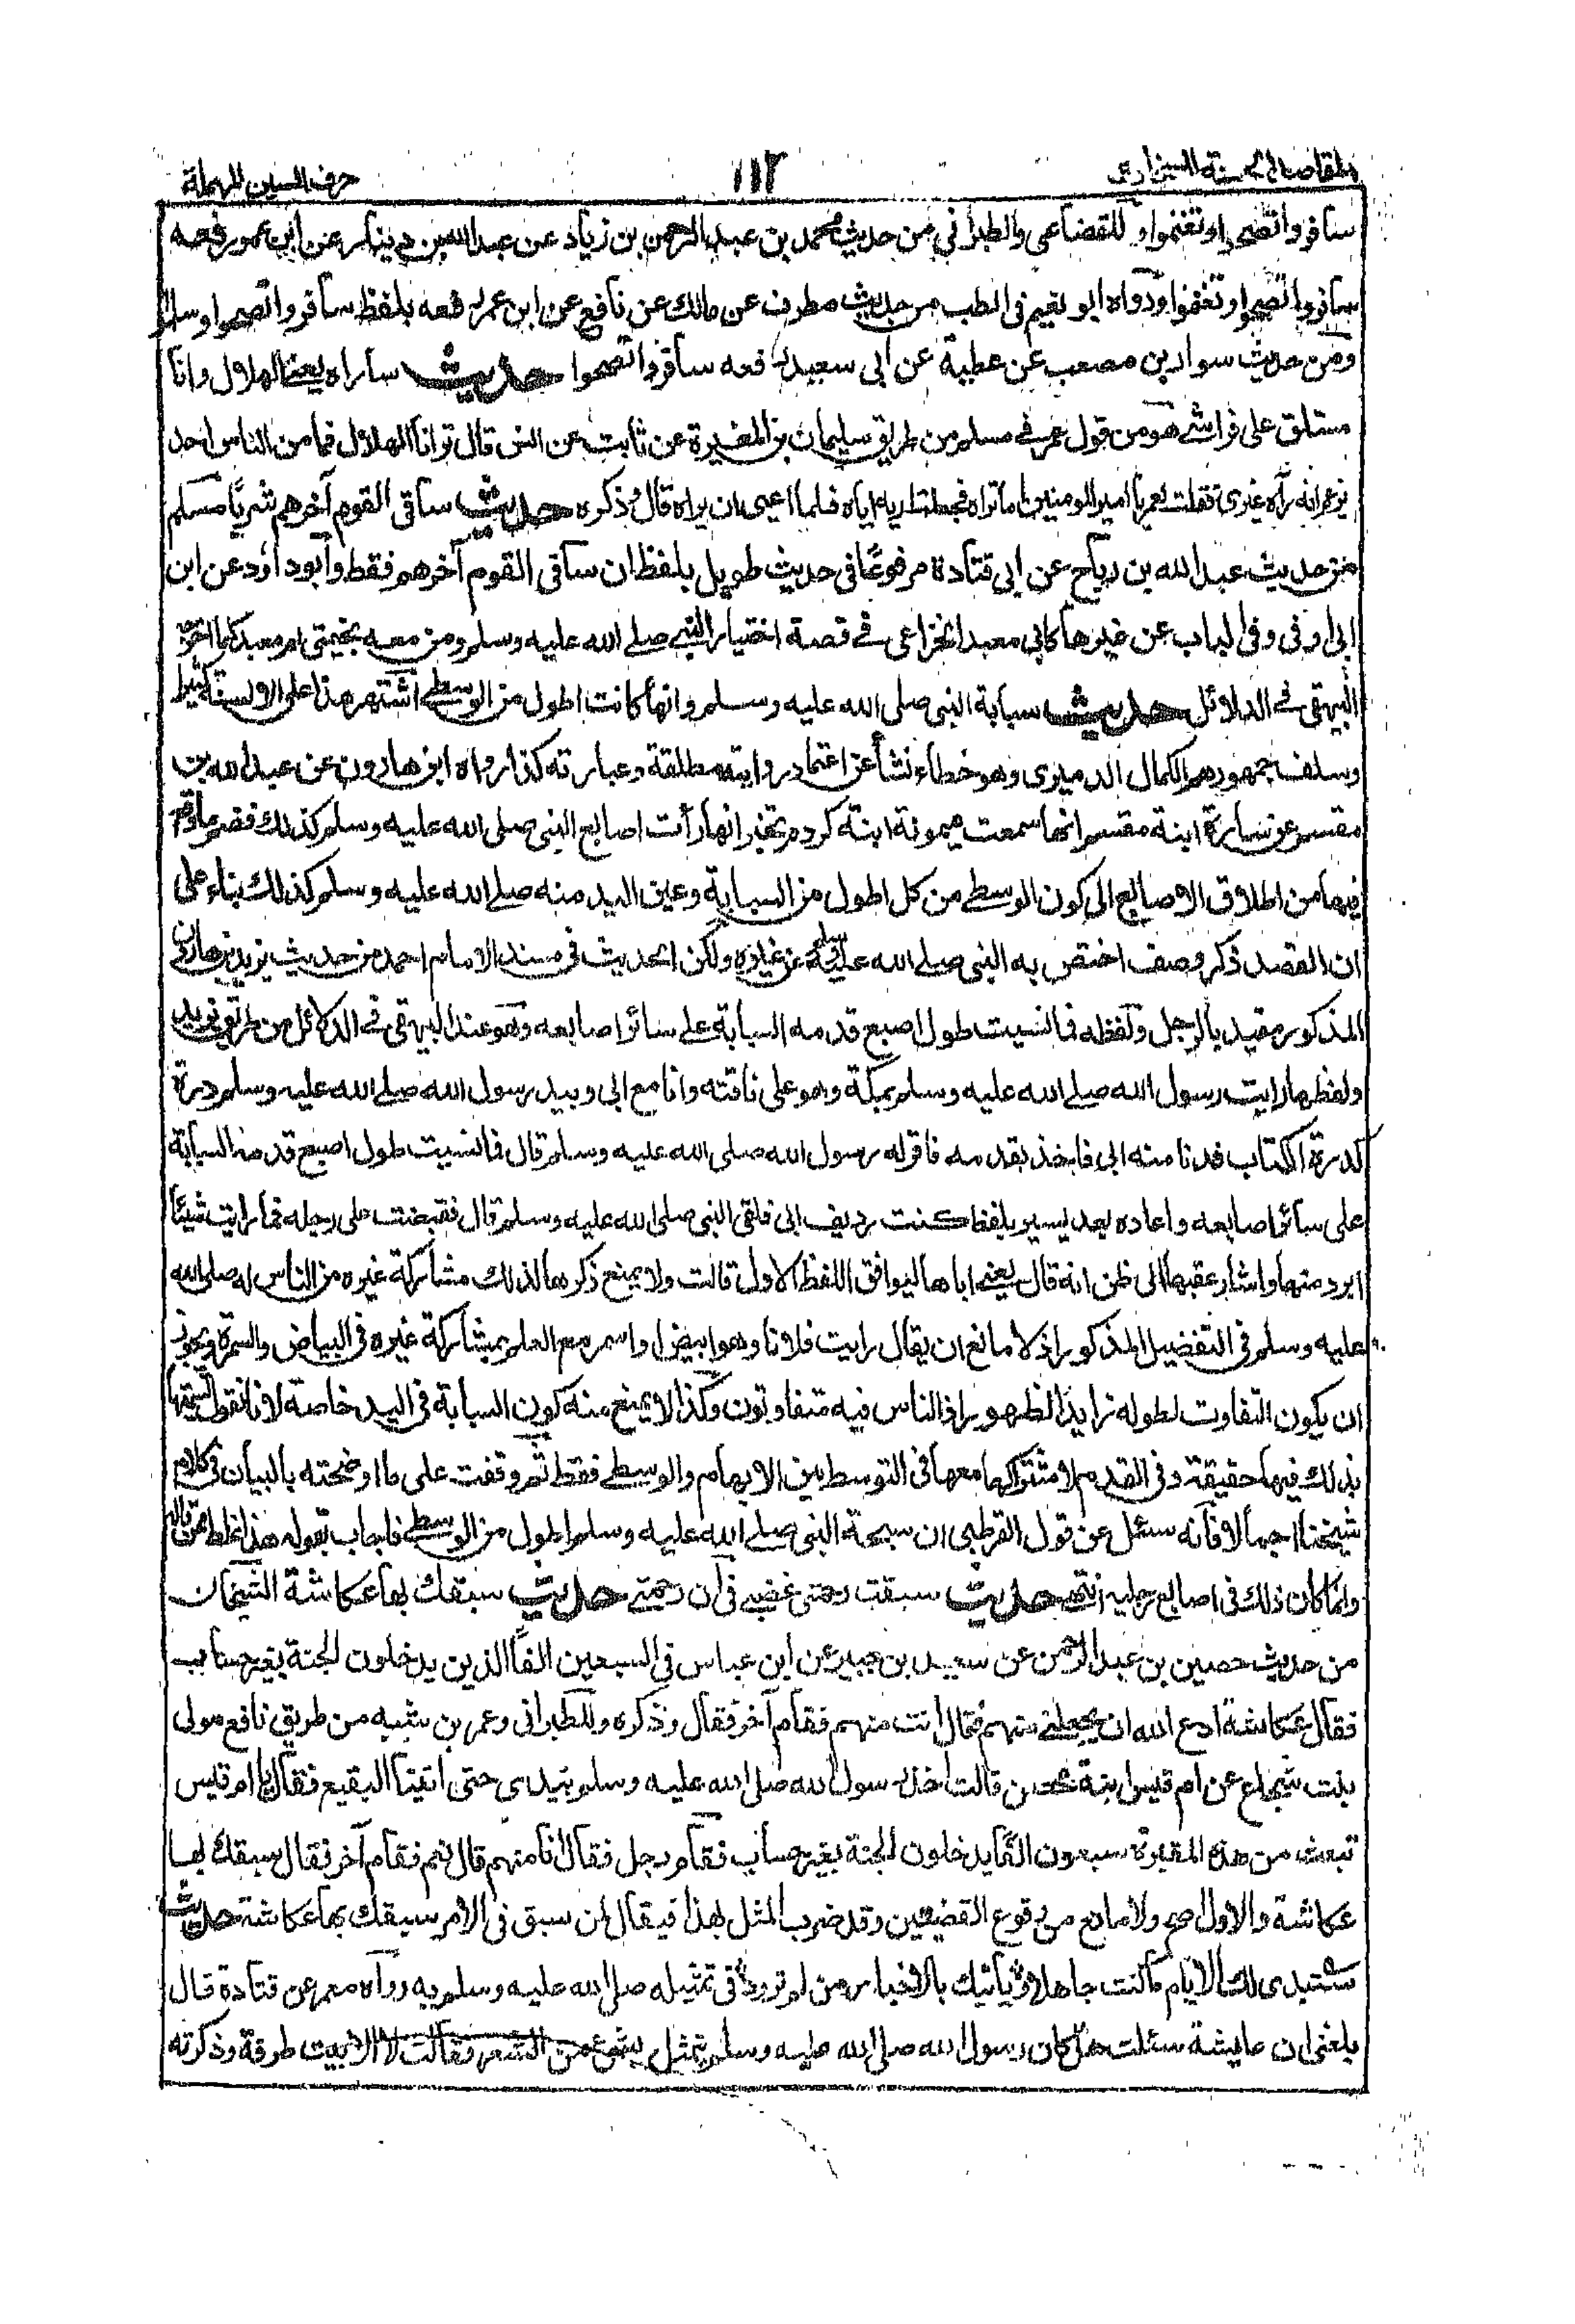 المقاصد الحسنة للسخاوى ١١٢ حرف السين المهملة
سافروا تصحوا وتغنموا وللقضاعى والطبرانى من حديث محمد بن عبد الرحمن بن زياد عن عبد الله بن دينار عن ابن عمر رفعه
سافروا تصحوا وتغنموا ورواه ابو نعيم فى الطب من حديث مطرف عن مالك عن نافع عن ابن عمر رفعه بلفظ سافروا تصحوا وسلموا
ومن حديث سوار بن مصعب عن عطية عن ابى سعيد رفعه سافروا تصحوا حديث سأراه يعنى الهلال وانا
مستلق على فراشى هو من قول عمر فى مسلم من طريق سليمان بن المغيرة عن ثابت عن انس قال تراانا الهلال فما من الناس احد
يزعم انه رآه غيرى فقلت لعمر يا امير المومنين اما تراه فجعلت اريه اياه فلما اعيى ان يراه قال وذكره حديث ساقى القوم آخرهم شربًا مسلم
من حديث عبد الله بن رباح عن ابى قتادة مرفوعًا فى حديث طويل بلفظ ان ساقى القوم آخرهم فقط وابو داود عن ابن
ابى اوفى وفى الباب عن غيرهما كابى معبد الخزاعى فى قصة اختيار النبى صلى الله عليه وسلم ومن معه بخيمتى ام معبد كما اخرجه
البيهقى فى الدلائل حديث سبابة النبى صلى الله عليه وسلم وانها كانت اطول من الوسطى اشتهر هذا على الالسنة كثيرا
وسلف جمهورهم الكمال الدميرى وهو خطاء نشأ عن اعتماد رواية مطلقة وعبارته كذا رواه ابن هارون عن عبد الله بن
مقسم عن سارة ابنة مقسم انها سمعت ميمونة ابنة كردم تخبر انها رأت اصابع النبى صلى الله عليه وسلم كذلك فضم ما وقع
فيها من اطلاق الاصابع الى كون الوسطى من كل اطول من السبابة وعين اليد منه صلى الله عليه وسلم كذلك بناء على
ان القصد ذكر وصف اختص به النبى صلى الله عليه وسلم عن غيره ولكن الحديث فى مسند الامام احمد من حديث يزيد بن هارون
المذكور مقيد بالرجل ولفظه فما نسيت طول اصبع قدمه السبابة على سائر اصابعه وهو عند البيهقى فى الدلائل من طريق يزيد
ولفظها رايت رسول الله صلى الله عليه وسلم بمكة وهو على ناقته وانا مع ابى وبيد رسول الله صلى الله عليه وسلم درة
كدرة الكتاب فدنا منه ابى فاخذ بقدمه فاقر له رسول الله صلى الله عليه وسلم قال فما نسيت طول اصبع قدمه السبابة
على سائر اصابعه واعاده بعد يسير بلفظ كنت رديف ابى فلقى النبى صلى الله عليه وسلم قال فقبضت على رجله فما رايت شيئًا
ابرد منها واشار عقبها الى ظن انه قال يعنى اباها ليوافق اللفظ الاول قالت ولا يمنع ذكرها لذلك مشاركة غيره من الناس له صلى الله
عليه وسلم فى التفضيل المذكور اذ لا مانع ان يقال رايت فلانا وهو ابيض او اسمر مع العلم بمشاركة غيره فى البياض والسمرة ويجوز
ان يكون التفاوت لطوله زايد الظهور اذ الناس فيه متفاوتون وكذا لا يمنع منه كون السبابة فى اليد خاصة لانا نقول تسميتها
بذلك فيها حقيقة وفى القدم لاشتراكها معها فى التوسط بين الابهام والوسطى فقط ثم وقفت على ما اوضحته بالبيان فى كلام
شيخنا اجمالا فانه سئل عن قول القرطبى ان سبحة النبى صلى الله عليه وسلم اطول من الوسطى فاجاب بقوله هذا غلط ممن قاله
وانما كان ذلك فى اصابع رجليه انتهى حديث سبقت رحمتى غضبى فى ان رحمتى حديث سبقك بها عكاشة الشيخان
من حديث حصين بن عبد الرحمن عن سعيد بن جبير عن ابن عباس فى السبعين الفًا الذين يدخلون الجنة بغير حساب
فقال عكاشة ادع الله ان يجعلنى منهم فقال انت منهم فقام آخر فقال وذكره وللطبرانى وعمر بن شبه من طريق نافع مولى
بنت شجاع عن ام قيس ابنة محصن قالت اخذ رسول الله صلى الله عليه وسلم بيدى حتى اتينا البقيع فقال يا ام قيس
تبعث من هذه المقبرة سبعون الفًا يدخلون الجنة بغير حساب فقام رجل فقال انا منهم قال نعم فقام آخر فقال سبقك بها
عكاشة والاول اصح ولا مانع من وقوع القضيتين وقد ضرب المثل بهذا فيقال لمن سبق فى الامر سبقك بها عكاشة حديث
ستبدى لك الايام ما كنت جاهلا ويأتيك بالاخبار من لم تزود فى تمثيله صلى الله عليه وسلم به رواه معمر عن قتادة قال
بلغنى ان عايشة سئلت هل كان رسول الله صلى الله عليه وسلم يتمثل بشئ من الشعر فقالت لا الا بيت طرفة وذكرته